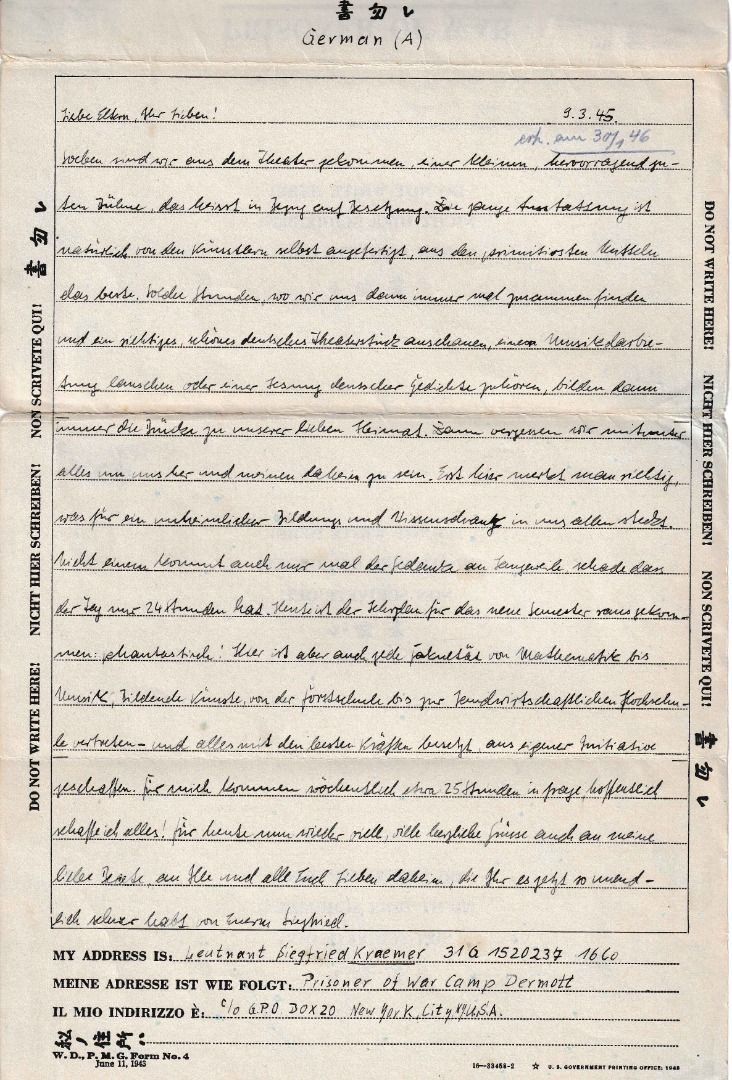 書勿レ
German (A)
Liebe Eltern, Ihr Lieben! 9.3.45.
erh. am 30/1 46
Soeben sind wir aus dem Theater gekommen, einer kleinen, hervorragend gu-
ten Bühne, das heisst in Bezug auf Besetzung. Die ganze Ausstattung ist
natürlich von den Künstlern selbst angefertigt, aus den primitivsten Mitteln
das beste. Solche Stunden, wo wir uns dann immer mal zusammen finden
und ein richtiges, schönes deutsches Theaterstück anschauen, einer Musikdarbie-
tung lauschen oder einer Lesung deutscher Gedichte zuhören, bilden dann
immer die Brücke zu unserer lieben Heimat. Dann vergessen wir mitunter
alles um uns her und meinen daheim zu sein. Erst hier merkt man richtig,
was für ein unheimlicher Bildungs und Wissensdrang in uns allen steckt.
Nicht einem kommt auch nur mal der Gedanke an Langeweile schade dass
der Tag nur 24 Stunden hat. Heute ist der Lehrplan für das neue Semester rausgekom-
men: phantastisch! Hier ist aber auch jede Fakultät von Mathematik bis
Musik, Bildende Künste, von der Forstschule bis zur Landwirtschaftlichen Hochschu-
le vertreten - und alles mit den besten Kräften besetzt, aus eigener Initiative
geschaffen. Für mich kommen wöchentlich etwa 25 Stunden in Frage, hoffentlich
schaffe ich alles! Für heute nun wieder viele, viele herzliche Grüsse auch an meine
liebe Beate, an Ille und alle Euch Lieben daheim, die Ihr es jetzt so unend-
lich schwer habt von Euerm Siegfried.
MY ADDRESS IS: Leutnant Siegfried Kraemer 31G 1520237 1660
MEINE ADRESSE IST WIE FOLGT: Prisoner of War Camp Dermott
IL MIO INDIRIZZO È: c/o G.P.O BOX 20 New York, City NY. U.S.A.
私ノ住所ハ:
W. D., P. M. G. Form No. 4
June 11, 1943
16—33458-2 ☆ U. S. GOVERNMENT PRINTING OFFICE: 1943
DO NOT WRITE HERE! NICHT HIER SCHREIBEN! NON SCRIVETE QUI! 書勿レ
DO NOT WRITE HERE! NICHT HIER SCHREIBEN! NON SCRIVETE QUI! 書勿レ